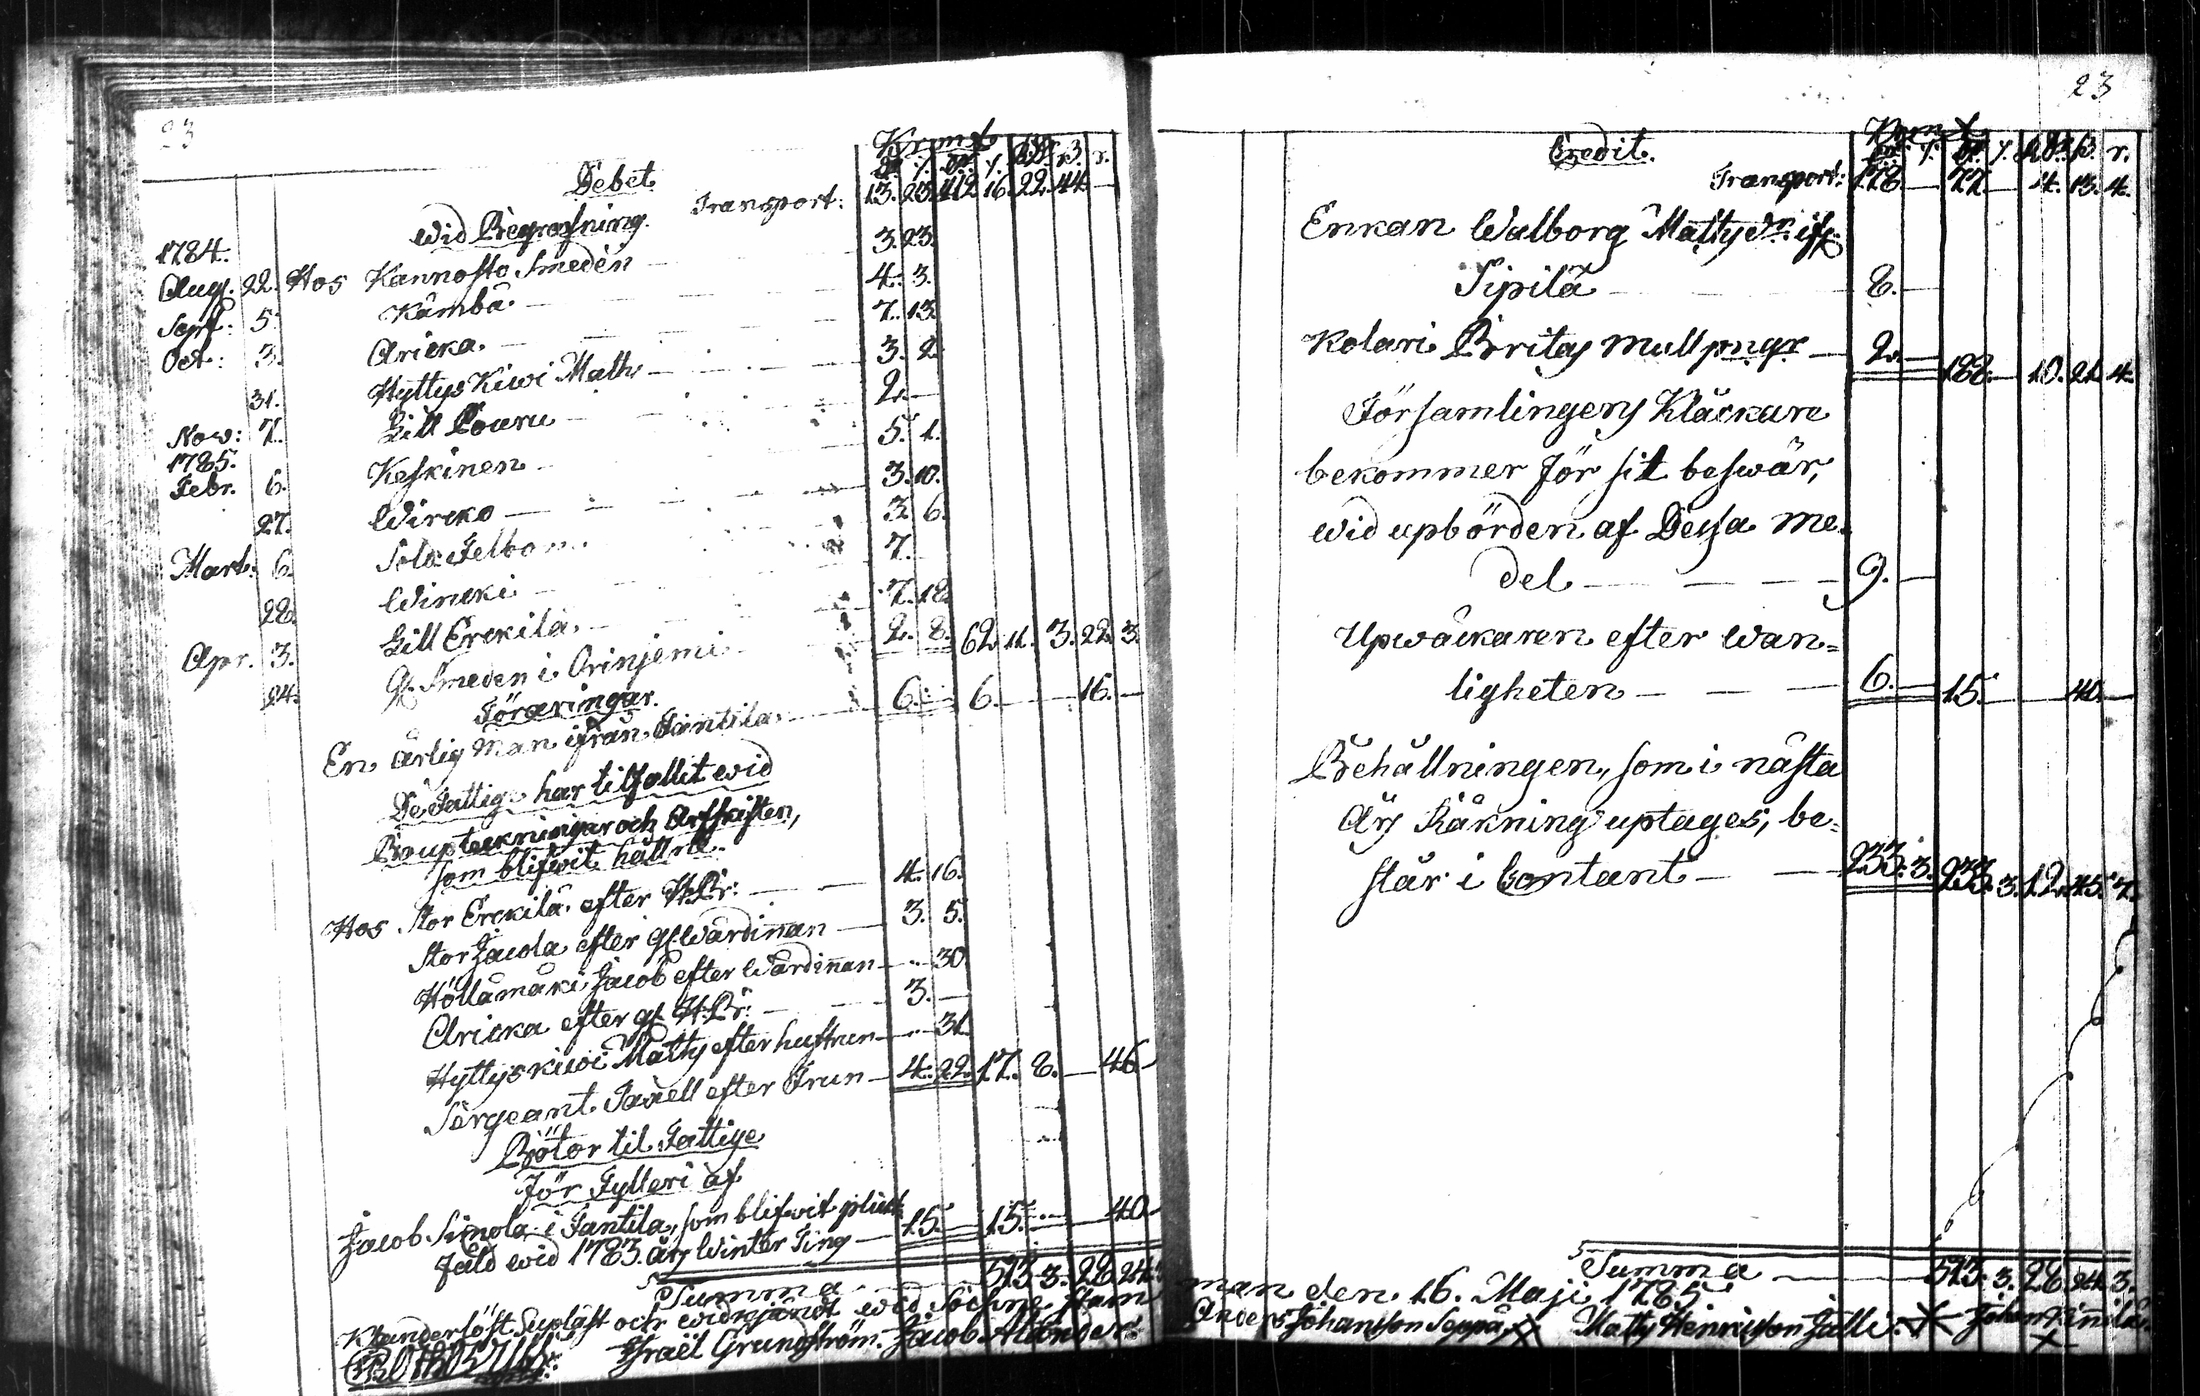 23
Debet
Transport: 13. 23. 412. 16. 22. 44. —
Wid Begrafning.
1784.
Aug. 22. Hos Kannosto Smeden — 3. 23.
Sept: 5. Kämbä — 4. 3.
Oct: 3. Aricka — 7. 13.
31. Hyttys Kiwi Matts — 3. 2.
Now: 7. Lill Pouru — 2. —
1785.
Febr. 6. Keskinen — 5. 1.
27. Wircko — 3. 10.
Mart. 6. Sola — 3. 6.
28. Wincki — 7.
Apr. 3. Lill Erckilä — 7. 18.
24. Gl. Smeden i Orinjemi — 2. 8. 62. 11. 3. 22. 3.
Föräringar.
En ärlig Man ifrån Tantila — 6. — 6. — 16. —
De Fattige har tilfallit wid
Bouptekningar och Arfskiften,
som blifwit hållne.
Hos Stor Erckilä efter H.Br: — 4. 16.
Stor Jacola efter gl. Wärdinnan — 3. 5.
Höllämäki Jacob efter Wärdinnan — 30.
Aricka efter gl. H.Br: — 3. —
Hyttyskiwi Matts efter hustrun — 31.
Sergeant Taxell efter Frun — 4. 22. 17. 8. — 46 —
Böter til Fattige
för Fylleri af
Jacob Simola i Tantila, som blifwit plikt-
fäld wid 1783. års Winter Ting — 15. — 15. — 40 —
Summa — 513. 3. 28. 24. 3.
Klanderlöst Upläst och widkjändt wid Sockne stäm
Israël Grundström. Jacob Alander.
23
Credit.
Transport: 178. — 77. — 4. 13. 4.
Enkan Walborg Mattsdr. ifr.
Sipilä — 8. —
Kolari Britas mullpngr — 2. — 188. — 10. 21. 4.
Församlingens Kläckare
bekommer för sit beswär,
wid upbörden af Dessa me-
del — 9. —
Upwäckaren efter wan=
ligheten — 6. — 15. — 40. —
Behållningen, som i nästa
års Räkning uptages, be=
står i Contant — 233. 3. 233. 3. 12. 45. 7.
Summa — 513. 3. 28. 24. 3.
man den 16. Maji 1785.
Anders Johansson Seppä. X Matts Henricsson Jälli. X Johan
X